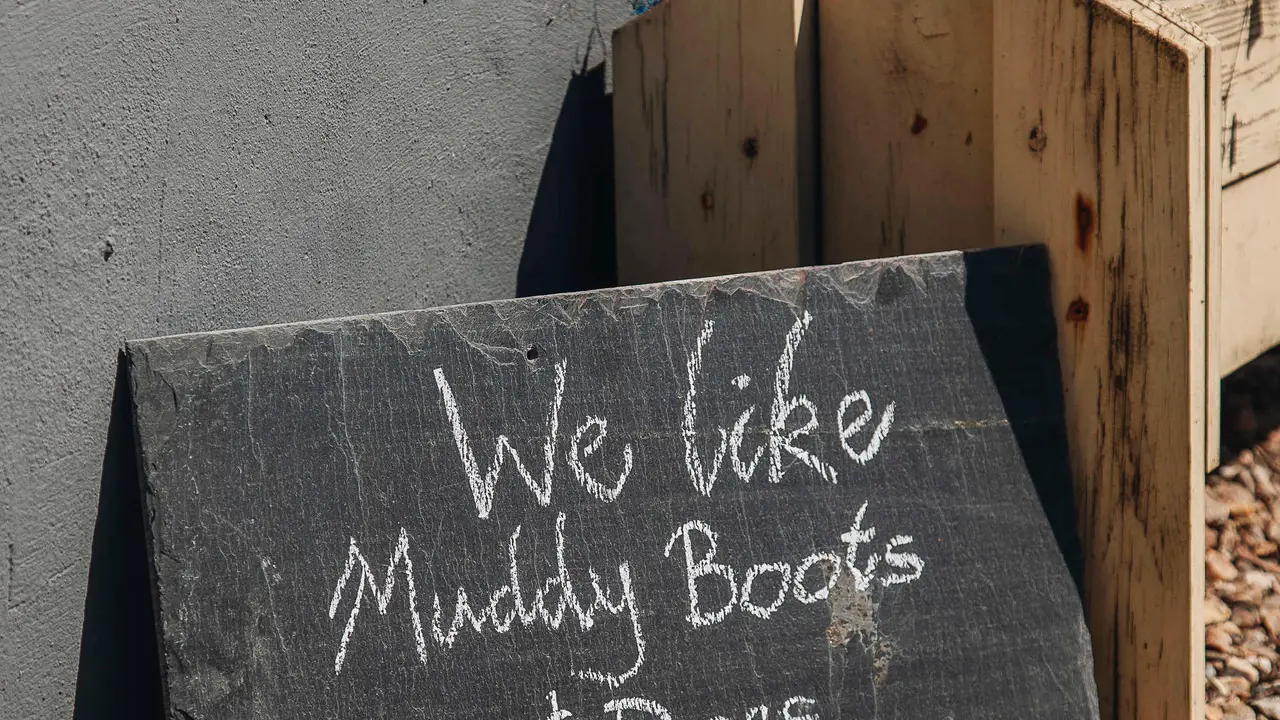 We like
Muddy Boots